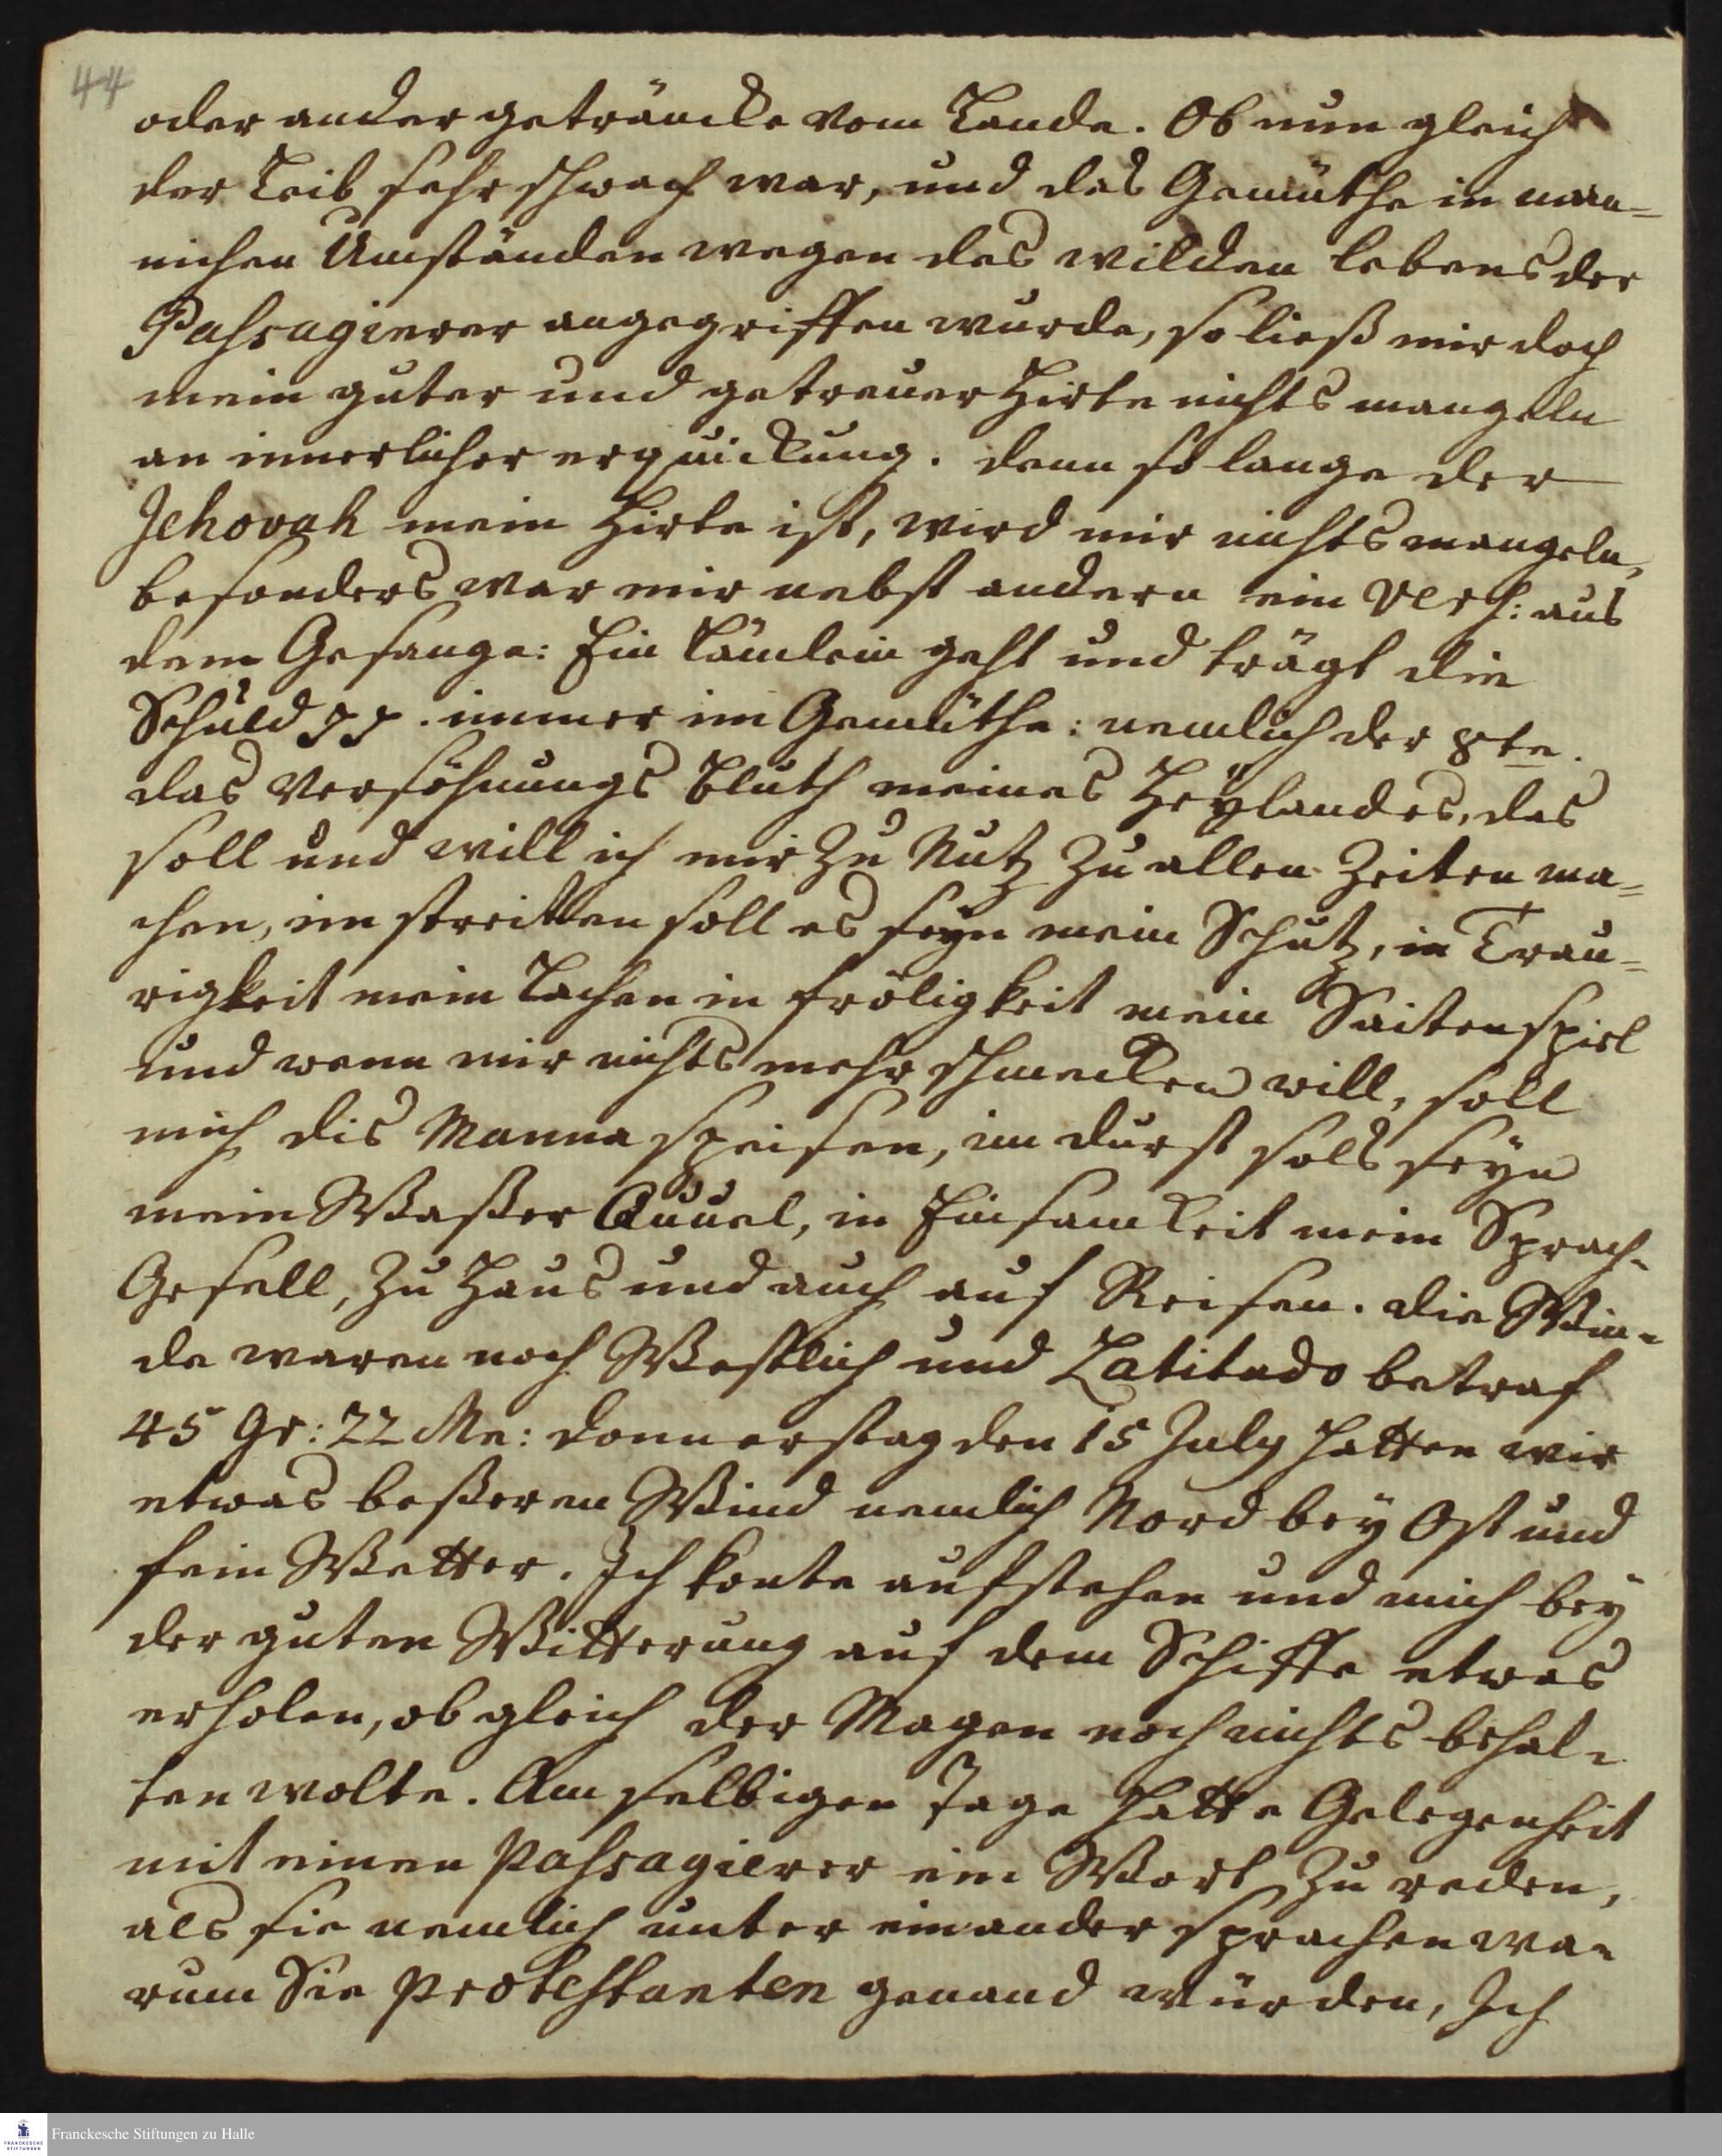 44
oder ander geträncke vom Lande. Ob nun gleich
der Leib sehr schwach war, und das Gemüthe in man-
nichen Umständen wegen des wilden lebens der
Passagierer angegriffen wurde, so ließ mir doch
mein guter und getreuer Hirte nichts mangeln
an innerlicher erquickung. denn so lange der
Jehovah mein Hirte ist, wird mir nichts mangeln,
besonders war mir nebst andern ein Vers: aus
dem Gesange: Ein Lämlein geht und trägt die
Schuld pp. immer im Gemüthe: nemlich der 8te.
das Versöhnungs bluth meines Heÿlandes, das
soll und will ich mir zu Nutz zu allen Zeiten ma-
chen, im streitten soll es seyn mein Schutz, in Trau-
rigkeit mein Lachen in fröligkeit mein Saitenspiel
und wann mir nichts mehr schmecken will, soll
mich dis Manna speisen, im durst sols seÿn
mein Waßer Quuel, in Einsamkeit mein Sprach-
Gesell, zu Haus und auch auf Reisen. die Win-
de waren noch Westlich und Latitudo betraf
45 Gr: 22 Mn: donnerstag den 15 July hatten wir
etwas beßeren Wind nemlich Nord beÿ Ost und
fein Wetter. Ich konte aufstehen und mich beÿ
der guten Witterung auf dem Schiffe etwas
erholen, ob gleich der Magen noch nichts behal-
ten wolte. Am selbigen Tage hatte Gelegenheit
mit einen Passagierer ein Wort zu reden,
als sie nemlich unter einander sprachen wa-
rum Sie Protestanten genand würden, Ich
FRANCKESCHE STIFTUNGEN
Franckesche Stiftungen zu Halle